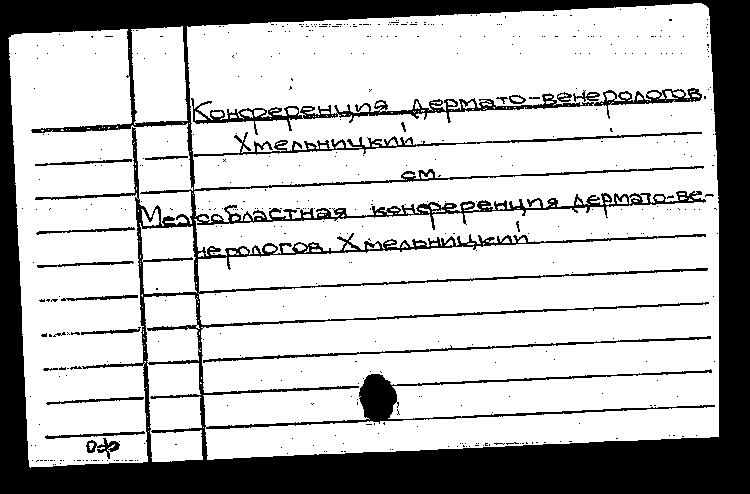 Конференция дермато-венерологов.
Хмельницкий.
см.
Межобластная конференция дермато-ве-
нерологов. Хмельницкий